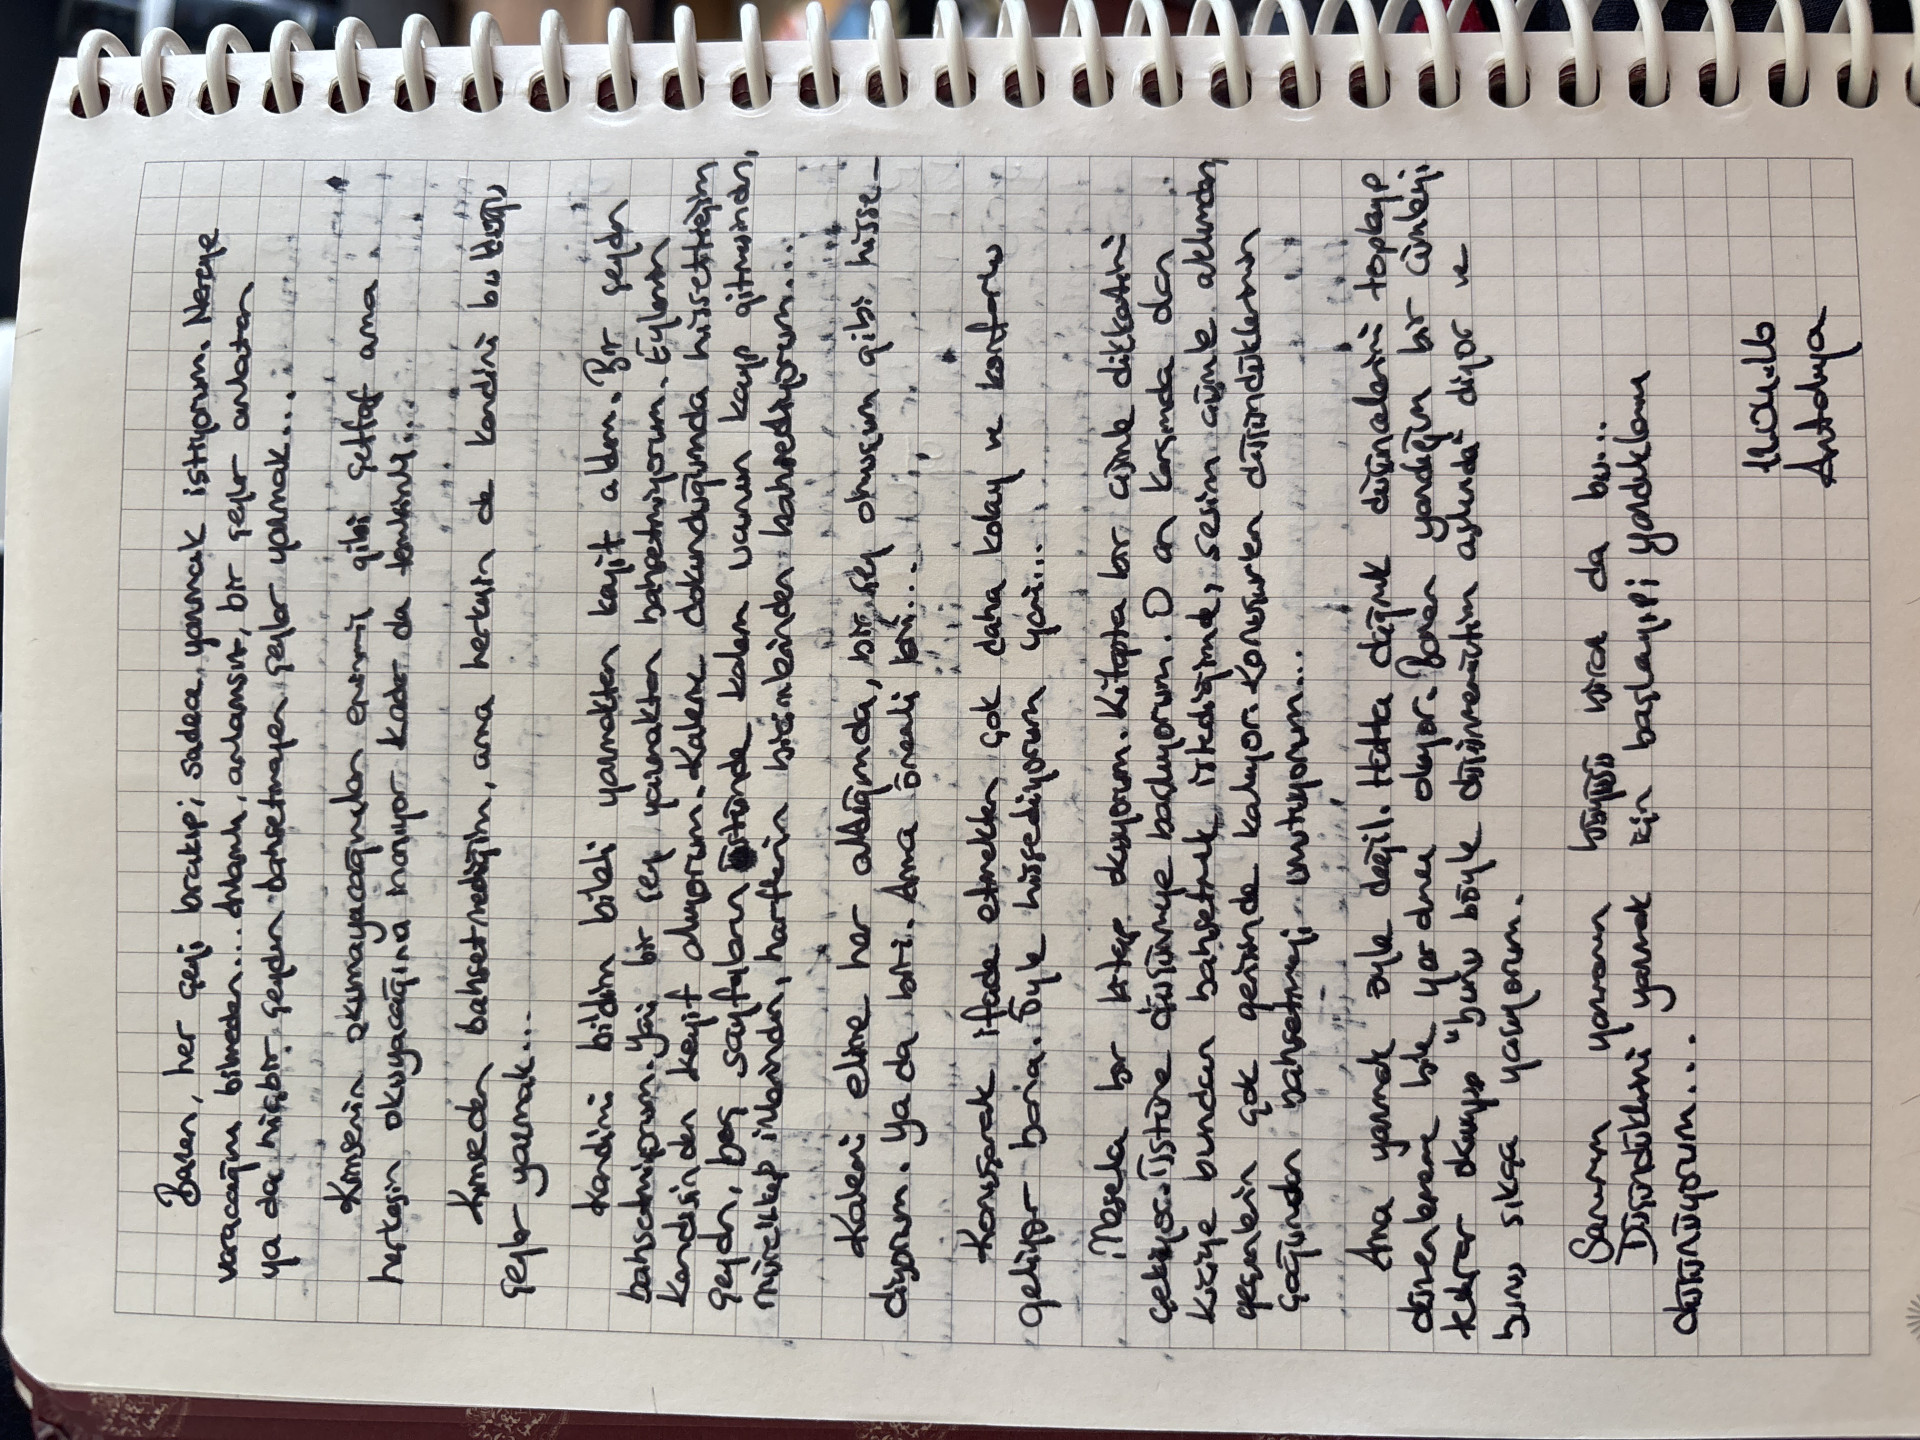 Bazen, her şeyi bırakıp; sadece yazmak istiyorum. Nereye
varacağını bilmeden... anlamlı, anlamsız, bir şeyler anlatan
ya da hiçbir şeyden bahsetmeyen şeyler yazmak...
Kimsenin okumayacağından eminmiş gibi şeffaf ama
herkesin okuyacağına inanıyor kadar da temkinli...
Kimseden bahsetmediğim, ama herkesin de kendini bulduğu
şeyler yazmak...
Kendimi bildim bileli yazmaktan keyif aldım. Bir şeyden
bahsetmiyorum. Yani bir şey yazmaktan bahsetmiyorum. Eylemin
kendisinden keyif alıyorum. Kaleme dokunduğumda hissettiğim
şeyden, boş sayfaların üstünde kalem ucunun kayıp gitmesinden,
mürekkep izlerinden, harflerin biçimlerinden bahsediyorum...
Kalemi elime her aldığımda, bir şey olmuşum gibi hisse-
diyorum. Ya da biri. Ama önemli biri...
Konuşarak ifade etmekten çok daha kolay ve konforlu
geliyor bana. Öyle hissediyorum yani...
Mesela bir kitap okuyorum. Kitapta bir cümle dikkatimi
çekiyor. Üstüne düşünmeye başlıyorum. O an karşımda olan
kişiye bundan bahsetmek istediğimde, sesim cümle aklımdan
geçenlerin çok gerisinde kalıyor. Konuşurken düşündüklerimin
çoğundan bahsetmeyi unutuyorum...
Ama yazmak öyle değil. Hatta dağınık düşüncelerimi toplayıp
düzenlememe bile yardımcı oluyor. Bazen yazdığım bir cümleyi
tekrar okuyup "bunu böyle düşünmemiştim aslında" diyor ve
bunu sıkça yaşıyorum.
Sanırım yazmanın büyüsü biraz da bu...
Düşündüklerini yazmak için başlayıp; yazdıklarını
düşünüyorum...
Antalya